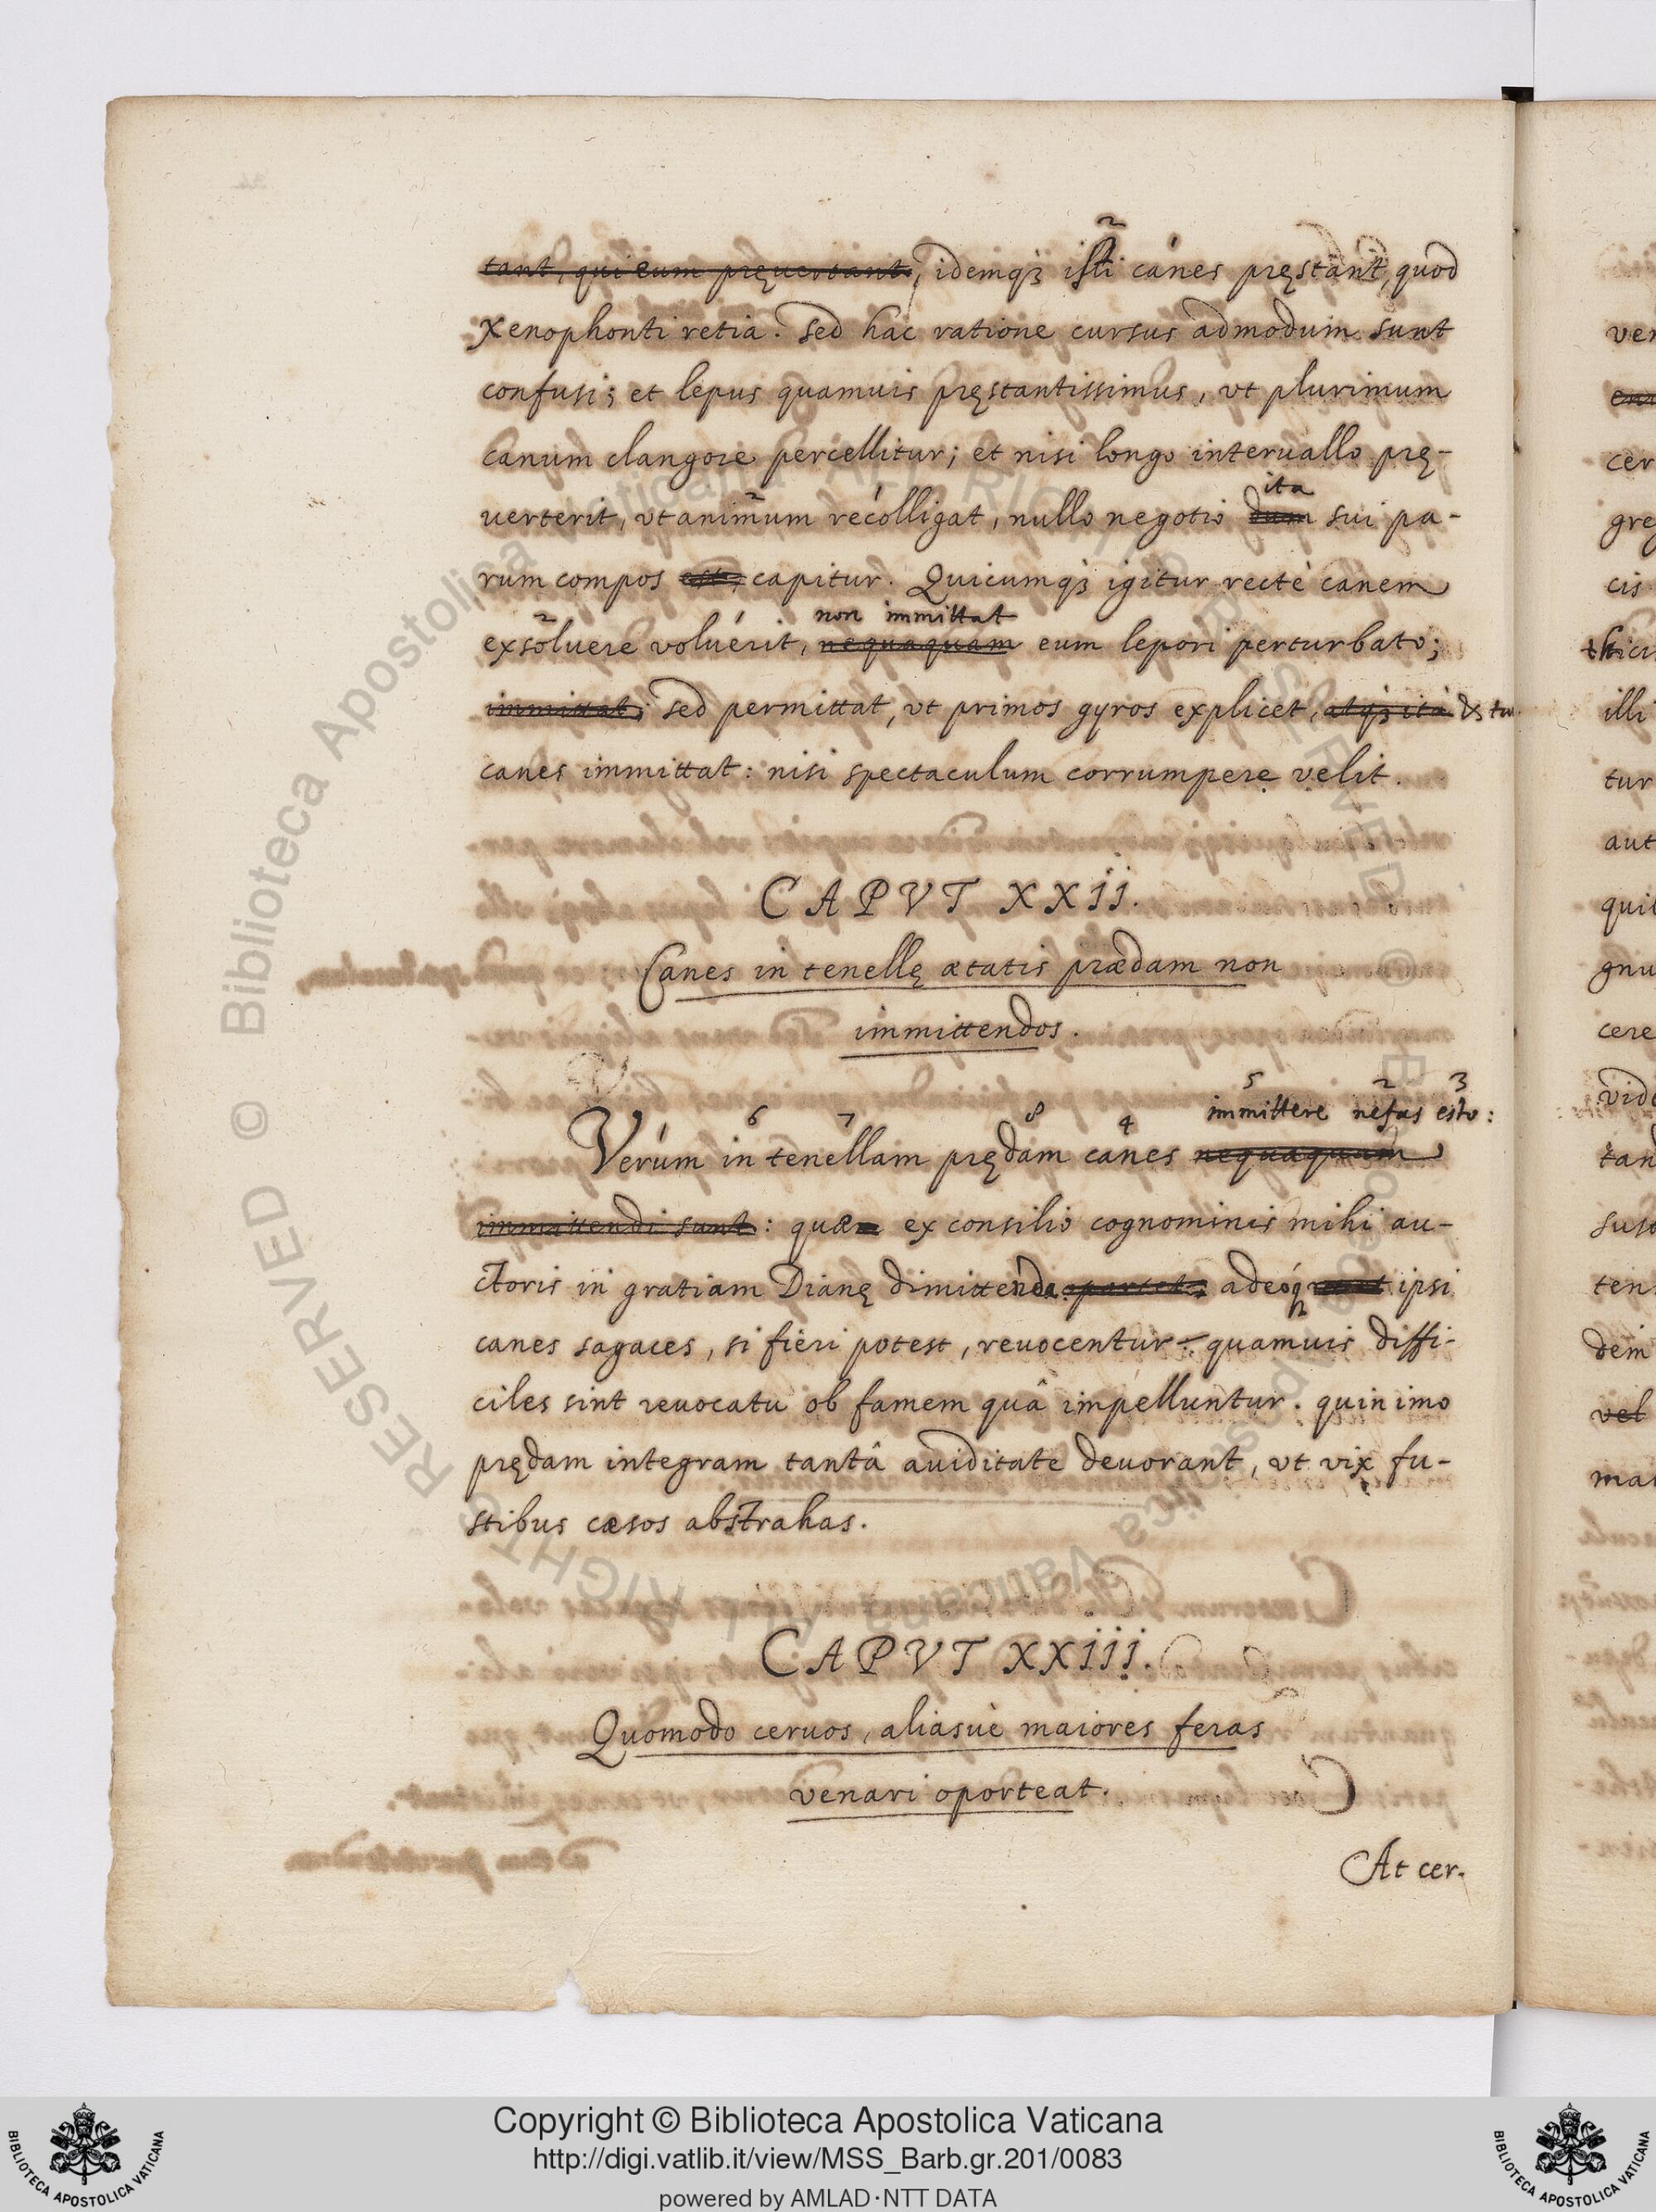 tant, qui eum pręuertant, idemq́ꝫ isti canes pręstant, quod
Xenophonti retia. Sed hac ratione cursus admodum sunt
confusi; et lepus quamuis pręstantissimus, vt plurimum
canum clangore percellitur; et nisi longo interuallo prę-
uerterit, vt animum recolligat, nullo negotio dum ita sui pa-
rum compos est, capitur. Quicumqꝫ igitur rectè canem
exsoluere voluerit, nequaquam non immittat eum lepori perturbato;
immittat; sed permittat, vt primos gyros explicet, atqꝫ ita & tu
canes immittat: nisi spectaculum corrumpere velit.
CAPVT XXII.
Canes in tenellę ætatis prædam non
immittendos.
5 2 3
immittere nefas esto:
1 6 7 8 4
Verùm in tenellam prędam canes nequaquam
immittendi sunt: quæ ex consilio cognominis mihi au-
ctoris in gratiam Dianę dimittenda oportet; adeóq ipsi
canes sagaces, si fieri potest, reuocentur: quamuis diffi-
ciles sint reuocatu ob famem quâ impelluntur. quin imo
prędam integram tantâ auiditate deuorant, vt vix fu-
stibus cæsos abstrahas.
CAPVT XXIII.
Quomodo ceruos, aliasuè maiores feras
venari oporteat.
At cer-
Copyright © Biblioteca Apostolica Vaticana
http://digi.vatlib.it/view/MSS_Barb.gr.201/0083
powered by AMLAD·NTT DATA